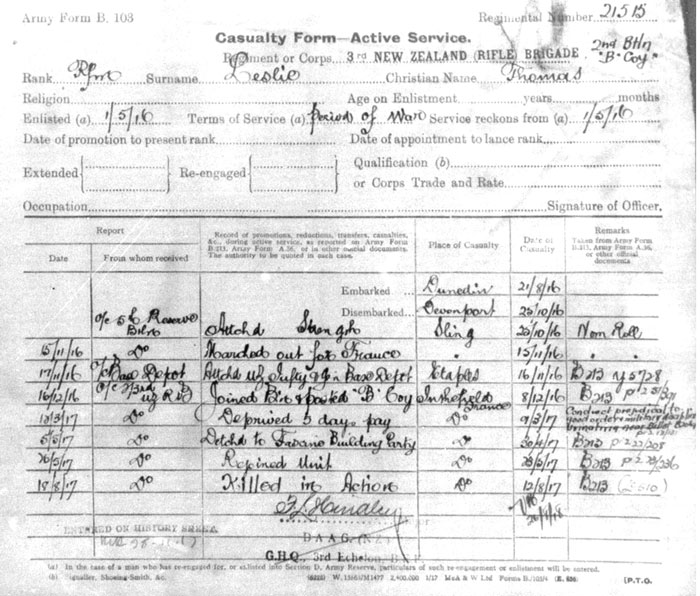 Army Form B. 103
Regimental Number 21515
Casualty Form—Active Service.
Regiment or Corps 3rd NEW ZEALAND (RIFLE) BRIGADE 2nd Btln "B" Coy
Rank Rfm Surname Leslie Christian Name Thomas
Religion Age on Enlistment years months
Enlisted (a) 1/5/16 Terms of Service (a) period of War Service reckons from (a) 1/5/16
Date of promotion to present rank Date of appointment to lance rank
Extended Re-engaged Qualification (b)
or Corps Trade and Rate
Occupation Signature of Officer.
Report
Date
From whom received
Record of promotions, reductions, transfers, casualties, &c., during active service, as reported on Army Form B.213, Army Form A.36, or in other official documents. The authority to be quoted in each case.
Place of Casualty
Date of Casualty
Remarks
Taken from Army Form B.213, Army Form A.36, or other official documents
Embarked Dunedin 21/8/16
Disembarked Devonport 25/10/16
o/c 5th Reserve Btln Attchd Strength Sling 25/10/16 Nom Roll
15/11/16 Do Marched out for France " 15/11/16 "
17/11/16 Base Depot Attchd Base Depot Etaples 16/11/16 B213
16/12/16 Joined Btn & posted "B" Coy In the field France 8/12/16 B213
Do Deprived 5 days pay Do 9/3/17 Conduct prejudicial to good order & military discipline
5/5/17 Do Detchd to Building Party Do B213
Do Rejoined Unit Do B213
18/8/17 Do Killed in Action Do 12/8/17 B213
ENTERED ON HISTORY SHEET
D.A.A.G. (N.Z.)
G.H.Q., 3rd Echelon, B.E.F.
(a) In the case of a man who has re-engaged for, or enlisted into Section D, Army Reserve, particulars of such re-engagement or enlistment will be entered.
(b) Signaller, Shoeing-Smith, &c.
2,400,000 1/17 McA & W Ltd Forms B./103/4 [P.T.O.